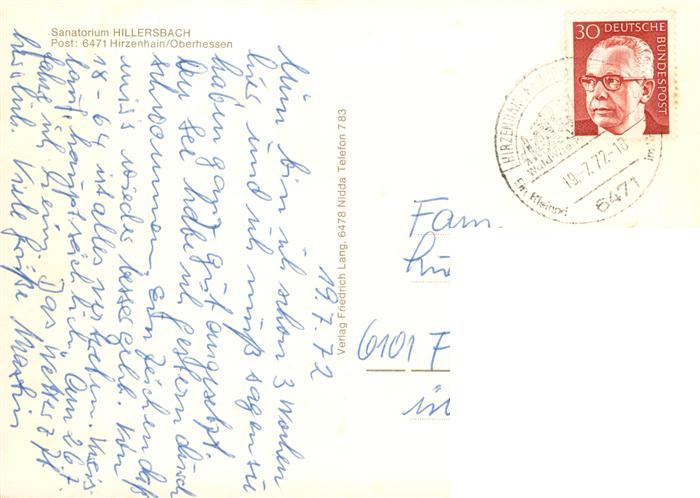 Sanatorium HILLERSBACH
Post: 6471 Hirzenhain/Oberhessen
19.7.72
Nun bin ich schon 3 Wochen
hier, und ich muß sagen sie
haben ganz gut angesetzt.
Den See habe ich gestern durch
schwommen, ein Zeichen daß
mirs wieder besser geht. Von
18 - 64 ist alles vertreten. Kreis
lauf hauptsächlich. Am 26.7.
fahre ich heim. Das Wetter z. Zt.
herrlich. Viele Grüße Martin
Verlag Friedrich Lang, 6478 Nidda Telefon 7 83
30 DEUTSCHE
BUNDESPOST
HIRZENHAIN
19.-7.72-18
6471
Fam.
6101 F